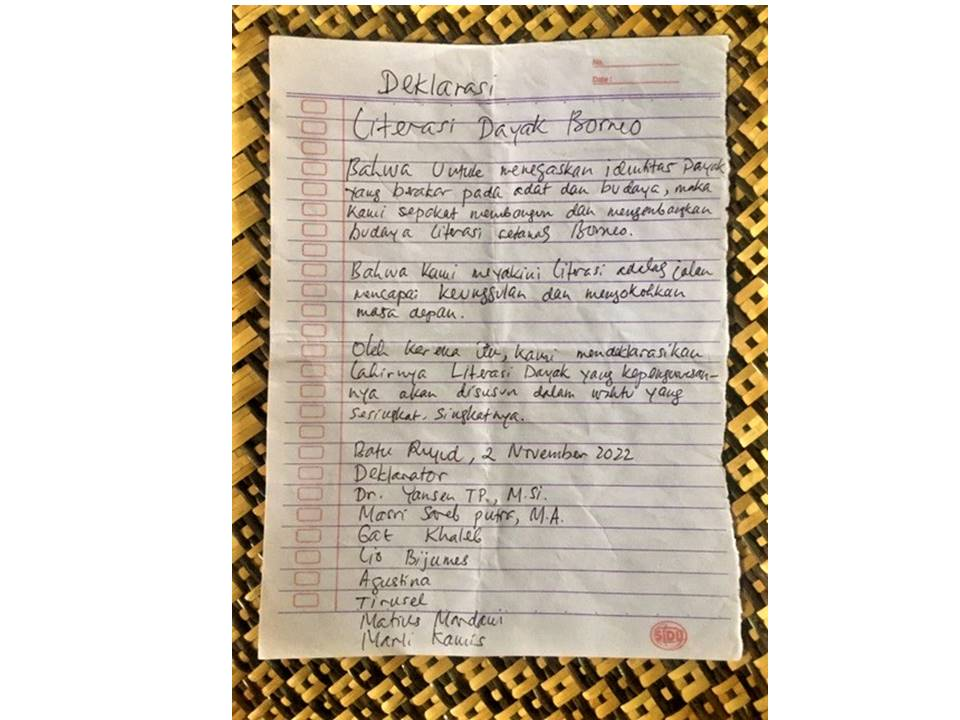 No.
Date :
Deklarasi
Literasi Dayak Borneo
Bahwa Untuk menegaskan identitas Dayak
yang berakar pada adat dan budaya, maka
Kami sepakat membangun dan mengembangkan
budaya literasi setanag Borneo.
Bahwa Kami meyakini literasi adalag jalan
mencapai keunggulan dan mengokohkan
masa depan.
Oleh kerena itu, kami mendeklarasikan
Lahirnya Literasi Dayak yang kepengurusan-
nya akan disusun dalam waktu yang
seringkat. singkatnya.
Batu Ruyud, 2 November 2022
Deklarator
Dr. Yansen TP., M.Si.
Masri Sareb putra, M.A.
Gat Khaleb
Lio Bijumes
Agustina
Tirusel
Matius Mardawi
Marli Kamis
SIDU